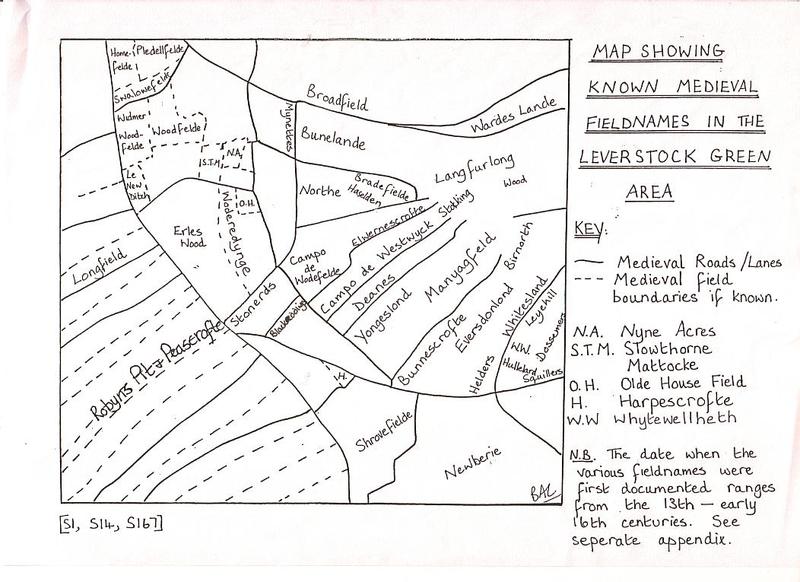 MAP SHOWING
KNOWN MEDIEVAL
FIELDNAMES IN THE
LEVERSTOCK GREEN
AREA
KEY:
Medieval Roads/Lanes
Medieval field
boundaries if known.
N.A. Nyne Acres
S.T.M. Stowthorne
Mattocke
O.H. Olde House Field
H. Harpescrofte
W.W Whytewellheth
N.B. The date when the
various fieldnames were
first documented ranges
from the 13th — early
16th centuries. See
seperate appendix.
Home-
felde
Pledellfelde
L
Swalowefelde
Widmer
Wood-
felde
Woodfelde
S.T.M
N.A.
Le
New
Ditch
O.H.
Woderedynge
Erles
Wood
Longfield
Robyns Pit & Peascrofte
Stonerds
Broadfield
Wardes Lande
Mynettes
Bunelande
Langfurlong
Wood
Northe
Bradefielde
Haselden
Elwernescrofte
Stocking
Campo
de
Wodefelde
Campo de Westwyck
Deanes
Yongeslond
Manyagfeld
Birnorth
Bunnescrofte
Eversdonlond
Helders
Whikesland
Leyehill
W.W.
Dossemers
Squillers
H.
Shrovefielde
Newberie
BAC
[S1, S14, S167]